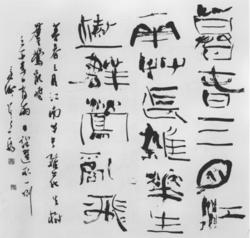 暮春三月江
南艸長雜華生
樹群鶯亂飛
暮春三月江南草長雜花生樹
群鶯亂飛